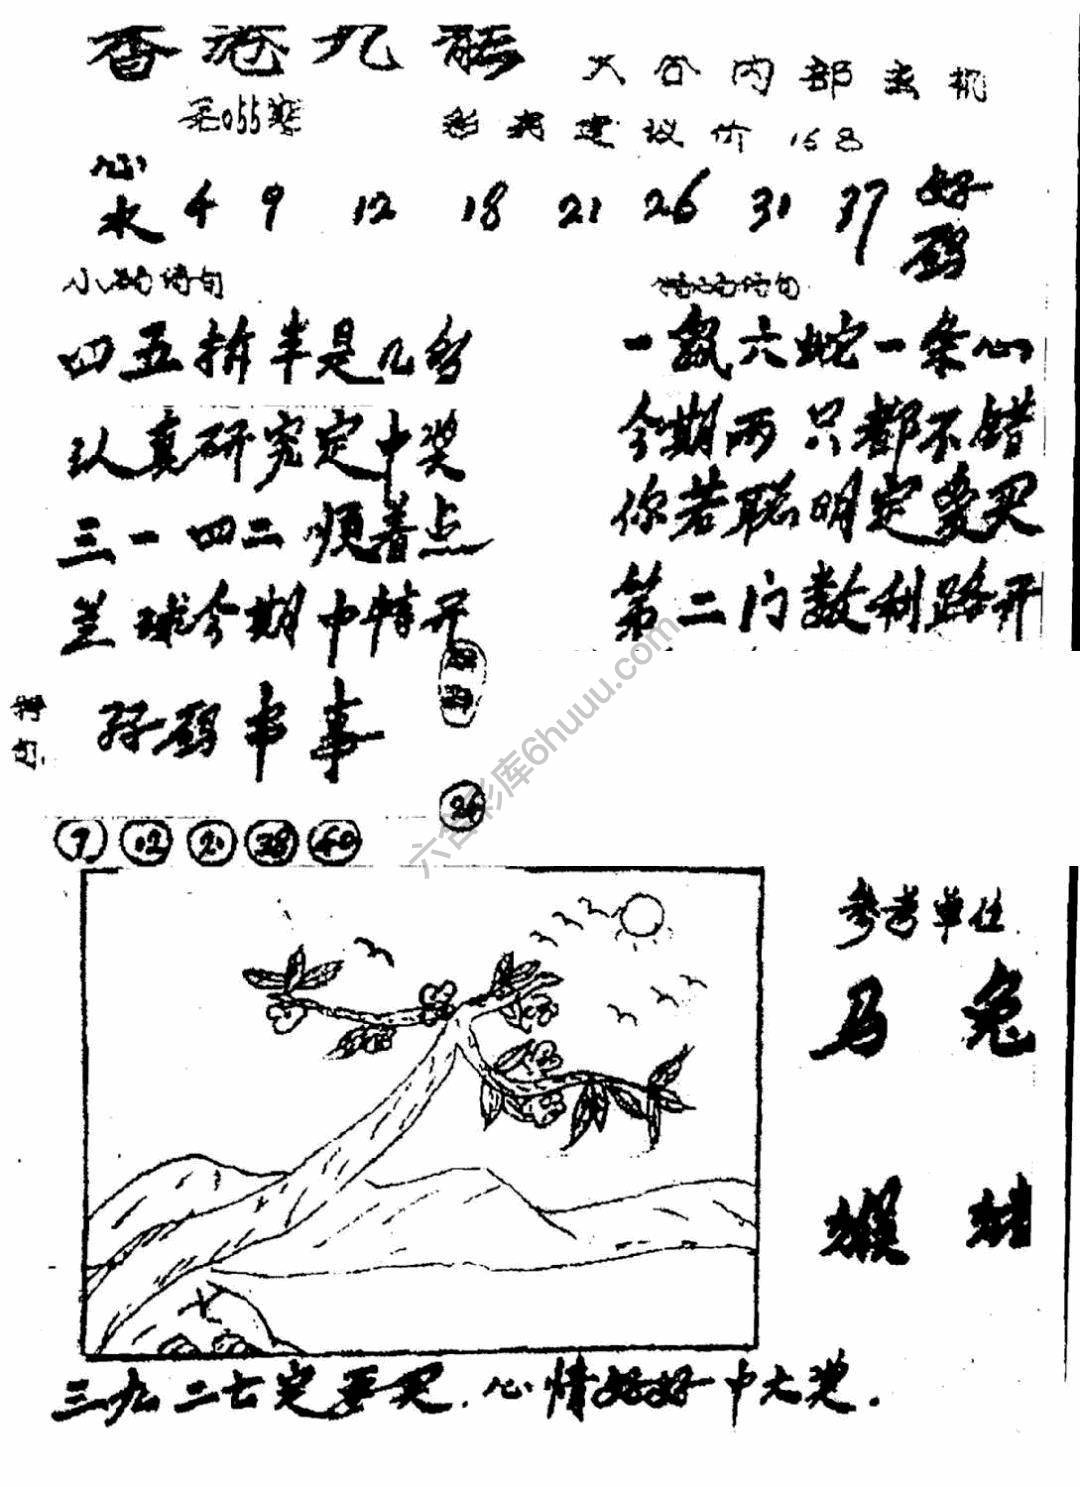 香港九龙
六合内部玄机
第055期
彩民建议价 168
心水 4 9 12 18 21 26 31 37 好码
诗句
四五拆半是几多
一鼠六蛇一条心
认真研究定中奖
今期两只都不错
三一四二顺着点
你若聪明定要买
兰球今期中特开
第二门数利路开
好码串事
26
7 12 21 38 40
六合彩库6huuu.com
参考单位
马 兔
猴 猪
三九二七定要买.心情好好中大奖.